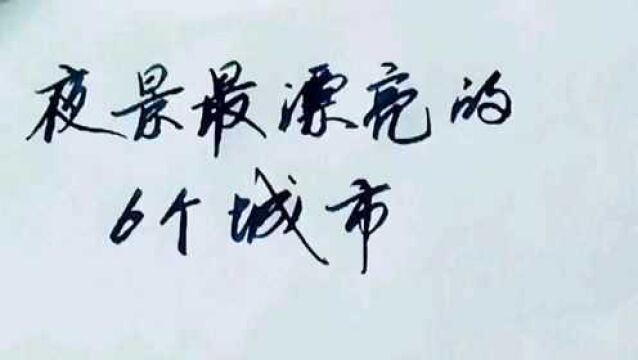 夜景最漂亮的
6个城市